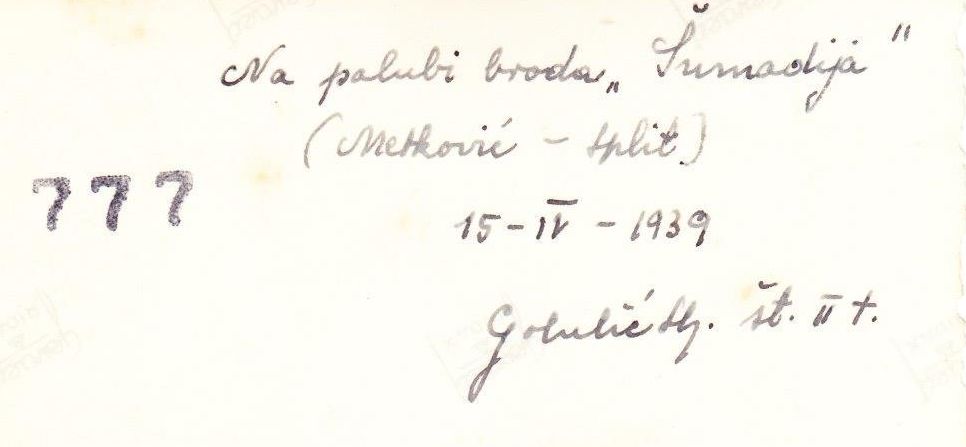 Na palubi broda „Šumadija"
(Metković - Split)
777
15-IV-1939
št. II t.